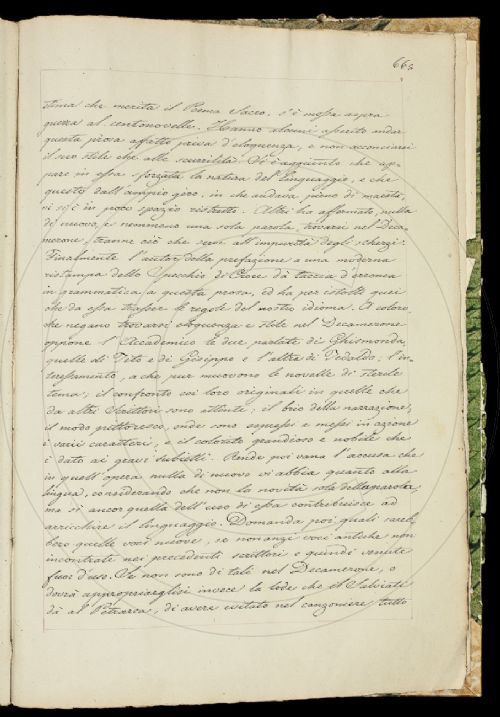 66.
stima che merita il Poema Sacro, s'è messa aspra
guerra al centonovelle. Hanno alcuni asserito andar
questa prosa affatto priva d'eloquenza, e non acconciarsi
il suo stile che alle scurrilità. Si è aggiunto che ap-
pare in essa sforzata la natura del linguaggio, e che
questo dall'ampio giro, in che andava pieno di maestà,
vi si è in poco spazio ristretto. Altri ha affermato, nulla
di nuovo, e nemmeno una sola parola, trovarsi nel Deca-
merone, tranne ciò che serve all'impurità degli scherzi.
Finalmente l'autor della prefazione a una moderna
ristampa dello Specchio di Croce dà taccia d'erronea
in grammatica a questa prosa, ed ha per istolti quei
che da essa trasser le regole del nostro idioma. A coloro
che negano trovarsi eloquenza e stile nel Decamerone
oppone l'Accademico le due parlate di Ghismonda,
quelle di Tito e di Gisippo e l'altra di Tedaldo; l'in-
teressamento, a che pur muovono le novelle di sterile
tema; il confronto coi loro originali in quelle che
da altri scrittori sono attinte; il brio della narrazione;
il modo pittoresco, onde sono espressi e messi in azione
i varii caratteri, e il colorito grandioso e nobile che
è dato ai gravi subietti. Rende poi vana l'accusa che
in quell'opera nulla di nuovo vi abbia quanto alla
lingua, considerando che non la novità sola delle parole,
ma sì ancor quella dell'uso di essa contribuisce ad
arricchire il linguaggio. Domanda poi quali sareb-
bero quelle voci nuove, se non anzi voci antiche non
incontrate nei precedenti scrittori e quindi venute
fuor d'uso. Se non sono di tali nel Decamerone, o
dovrà appropriarglisi invece la lode che il Salviati
dà al Petrarca, di avere evitato nel canzoniere tutto